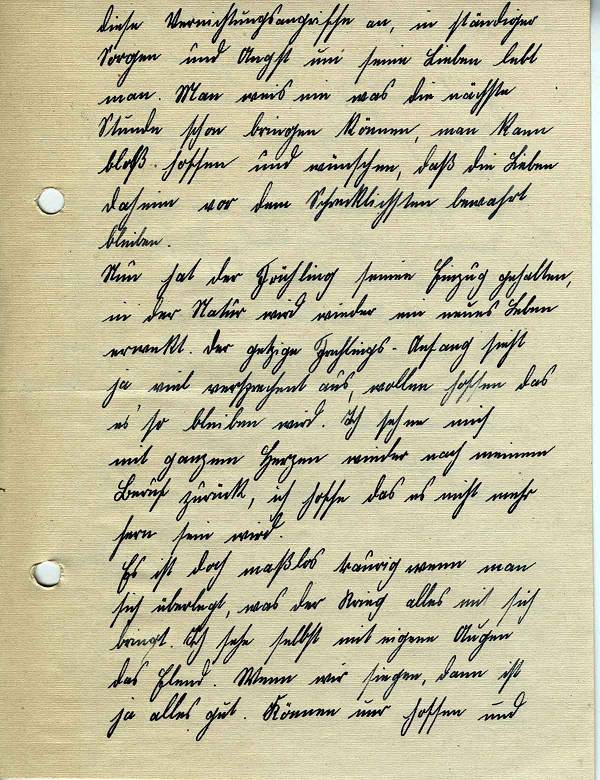 diese Vernichtungsangriffe an, in ständiger
Sorgen und Angst um seine Lieben lebt
man. Man weis nie was die nächste
Stunde schon bringen können, man kann
bloß hoffen und wünschen, daß die Lieben
daheim vor dem Schrecklichsten bewahrt
bleiben.
Nun hat der Frühling seinen Einzug gehalten,
in der Natur wird wieder ein neues Leben
erwekt. Der jetzige Frühlings-Anfang sieht
ja viel versprechent aus, wollen hoffen das
es so bleiben wird. Ich sehne mich
mit ganzem Herzen wieder nach meinem
Beruf zurück, ich hoffe das es nicht mehr
fern sein wird.
Es ist doch maßlos traurig wenn man
sich überlegt, was der Krieg alles mit sich
bringt. Ich sehe selbst mit eigene Augen
das Elend. Wenn wir siegen, dann ist
ja alles gut. Können nur hoffen und